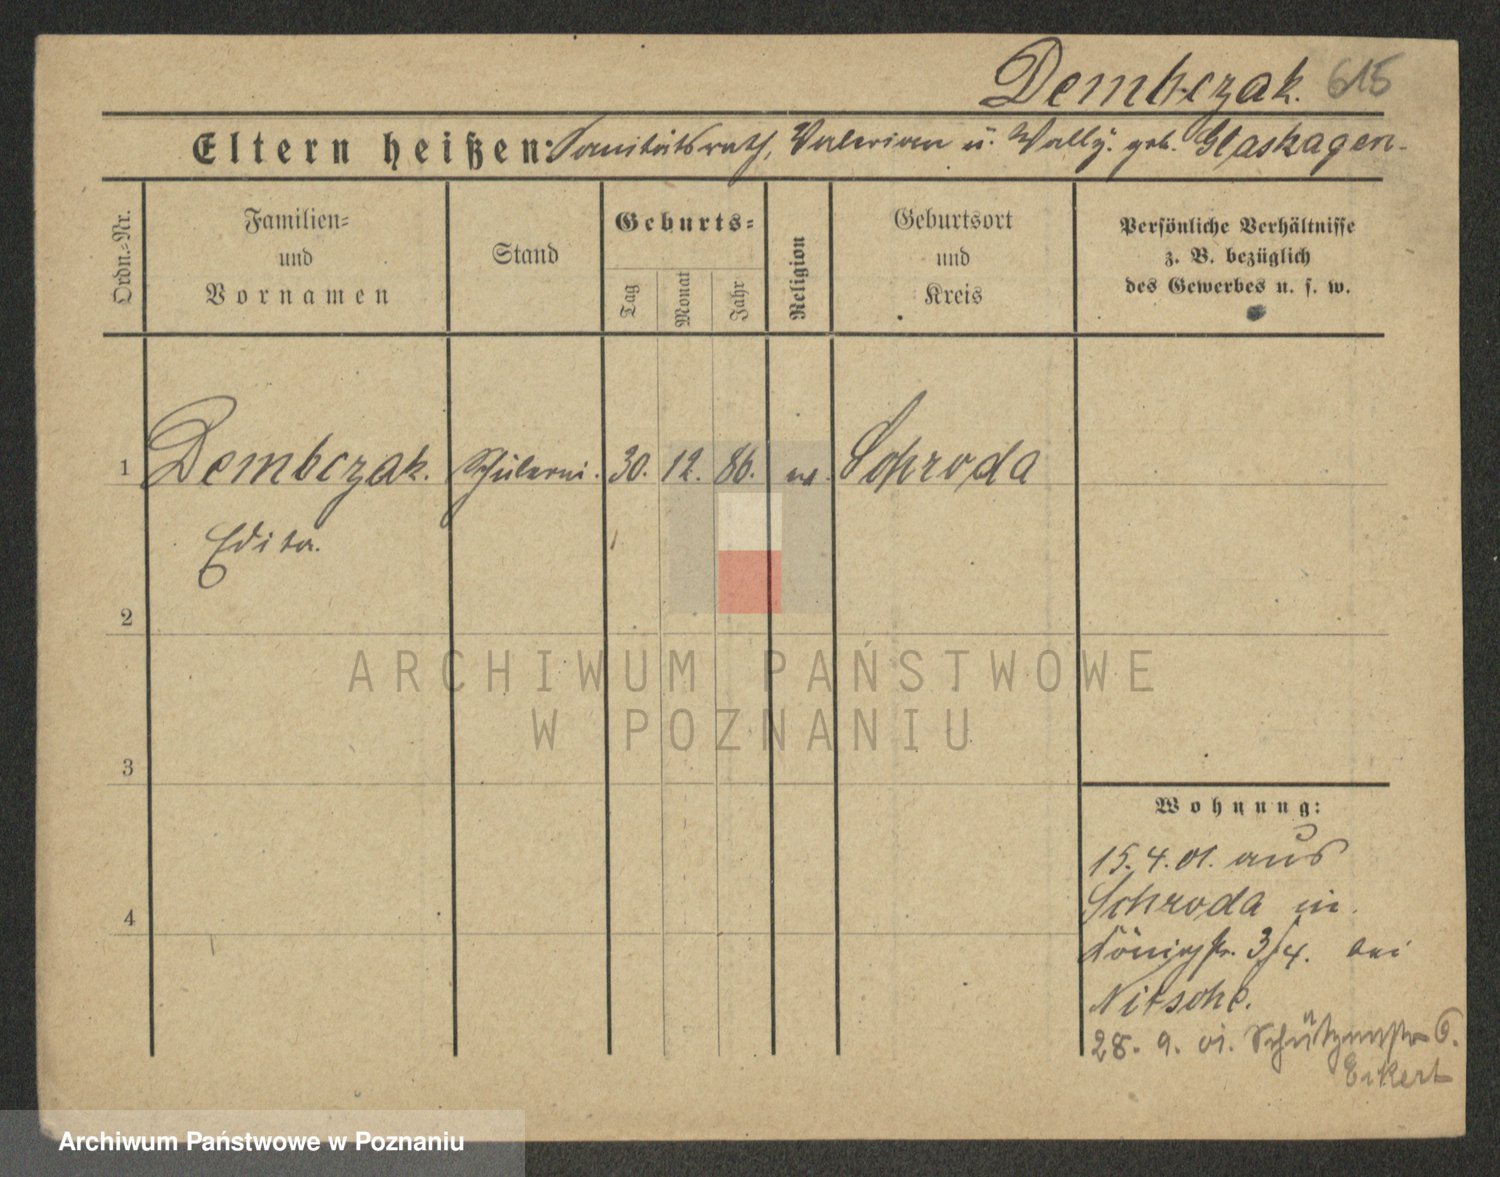 Dembczak. 615
Eltern heißen: Sanitätsrath, Valerian u. Wally. geb. Glaskagen.
Ordn.=Nr.
Familien=
und
Vornamen
Stand
Geburts=
Tag
Monat
Jahr
Religion
Geburtsort
und
Kreis
Persönliche Verhältnisse
z. B. bezüglich
des Gewerbes u. s. w.
1 Dembczak. Schülerin. 30. 12. 86. Schroda
Edita.
2
3
4
Wohnung:
15. 4. 01. aus
Schroda in
Königstr. 3/4. bei
Nitsche.
28. 9. 01. Schützenstr 6.
Eckert
ARCHIWUM PAŃSTWOWE
W POZNANIU
Archiwum Państwowe w Poznaniu